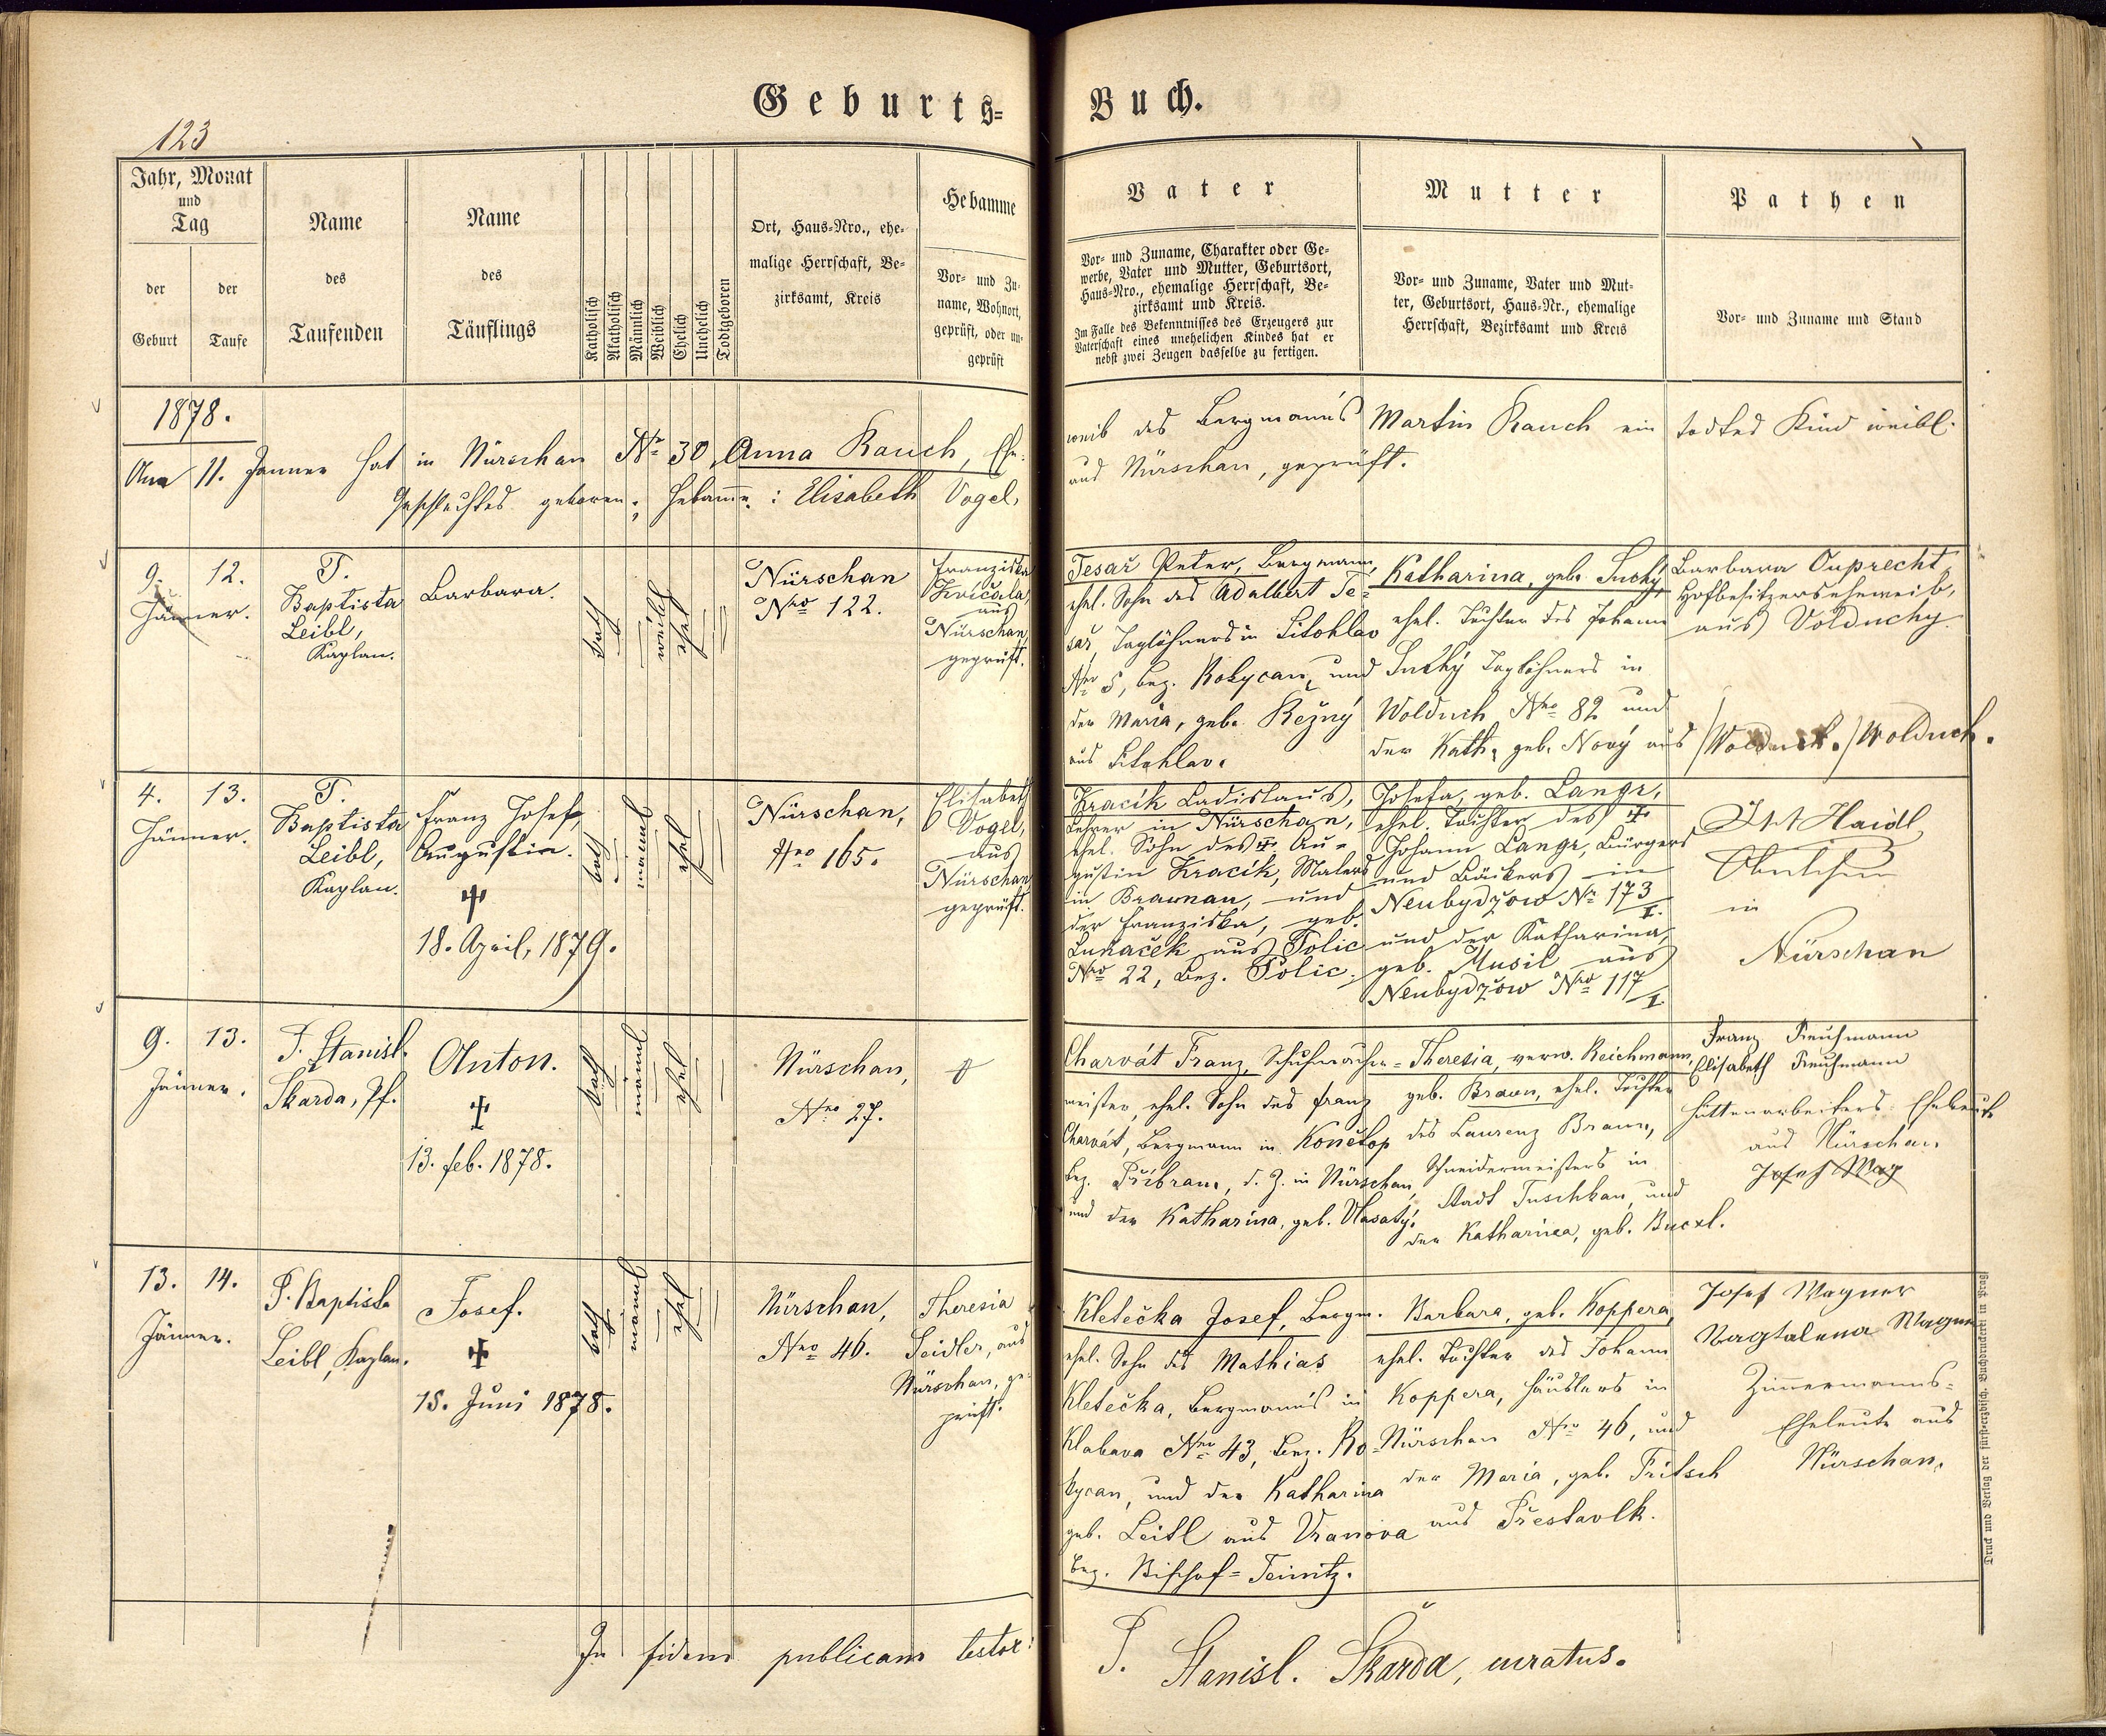 Geburts=
Buch.
123
Jahr, Monat
und
Tag
der
Geburt
der
Taufe
Name
des
Taufenden
Name
des
Täuflings
Katholisch
Akatholisch
Männlich
Weiblich
Ehelich
Unehelich
Todtgeboren
Ort, Haus=Nro., ehe=
malige Herrschaft, Be=
zirksamt, Kreis
Hebamme
Vor= und Zu=
name, Wohnort,
geprüft, oder un=
geprüft
Vater
Vor= und Zuname, Charakter oder Ge=
werbe, Vater und Mutter, Geburtsort,
Haus=Nro., ehemalige Herrschaft, Be=
zirksamt und Kreis.
Im Falle des Bekenntnisses des Erzeugers zur
Vaterschaft eines unehelichen Kindes hat er
nebst zwei Zeugen dasselbe zu fertigen.
Mutter
Vor= und Zuname, Vater und Mut=
ter, Geburtsort, Haus=Nr., ehemalige
Herrschaft, Bezirksamt und Kreis
Pathen
Vor= und Zuname und Stand
1878.
Am 11. Jänner hat in Nürschan Nr 30 Anna Rauch, Ehe=
weib des Bergmann's Martin Rauch ein todtes Kind weibl.
Geschlechtes geboren; Hebamme: Elisabeth Vogel,
aus Nürschan, geprüft.
9. 12.
Jänner.
P.
Baptista
Leibl,
Kaplan.
Barbara.
kath
weibl
ehel
Nürschan
Nro 122.
Franziska
Kvíčala,
aus
Nürschan
geprüft.
Tesař Peter, Bergmann,
ehel. Sohn des Adalbert Te=
sař, Taglöhners in Litohlav
Nro 5, bez. Rokycan, und
der Maria, geb. Režný
aus Litohlav.
Katharina, geb. Suchý,
ehel. Tochter des Johann
Suchý Taglöhners in
Wolduch Nro 82 und
der Kath. geb. Nový aus /Wolduch./ Wolduch.
Barbara Ouprecht,
Hofbesitzerseheweib,
aus Volduchy
4. 13.
Jänner.
P.
Baptista
Leibl,
Kaplan.
Franz Josef,
Augustin.
✝
18. April, 1879.
kath
männl
ehel
Nürschan,
Nro 165.
Elisabeth
Vogel,
aus
Nürschan
geprüft.
Kracík Ladislaus,
Lehrer in Nürschan,
ehel. Sohn des ✝ Au=
gustin Kracík, Malers
in Braunau, und
der Franziska, geb.
Luňaček aus Polic
Nro 22, Bez. Polic.
Josefa, geb. Langr,
ehel. Tochter des ✝
Johann Langr, Bürgers
und Bäckers in
Neubydžow Nr 173/I.
und der Katharina,
geb. Musil aus
Neubydžow Nro 117/I
Haidl
in
Nürschan
9. 13.
Jänner.
P. Stanisl.
Skarda, Pf.
Anton.
✝
13. feb. 1878.
kath
männl
ehel
Nürschan,
Nro 27.
Charvát Franz, Schuhmacher=
meister, ehel. Sohn des Franz
Charvát, Bergmann in Konětop
bez. Příbram, d. Z. in Nürschan,
und der Katharina, geb. Vlasatý.
Theresia, verw. Reichmann,
geb. Braun, ehel. Tochter
des Laurenz Braun,
Schneidermeisters in
Stadt Tuschkau, und
der Katharina, geb. Bucxl.
Franz Reuhmann
Elisabeth Reuhmann
Hüttenarbeiters Eheleute
aus Nürschan.
Josef Wag
13. 14.
Jänner.
P. Baptista
Leibl, Kaplan.
Josef.
✝
15. Juni 1878.
kath
männl
ehel
Nürschan,
Nro 46.
Theresia
Seidler, aus
Nürschan, ge=
prüft.
Kletečka Josef, Bergm.
ehel. Sohn des Mathias
Kletečka, Bergmann's in
Klabava Nro 43, bez. Ro=
kycan, und der Katharina
geb. Leitl aus Vranova
bez. Bischof=Teinitz.
Barbara, geb. Koppera,
ehel. Tochter des Johann
Koppera, Häuslers in
Nürschan Nro 46, und
der Maria, geb. Fritsch
aus Přestavlk.
Josef Wagner
Magtalena Wagner
Zimmermanns=
Eheleute aus
Nürschan.
In fidem publicam testor:
P. Stanisl. Skarda, curatus.
Druck und Verlag der fürst=erzbisch. Buchdruckerei in Prag